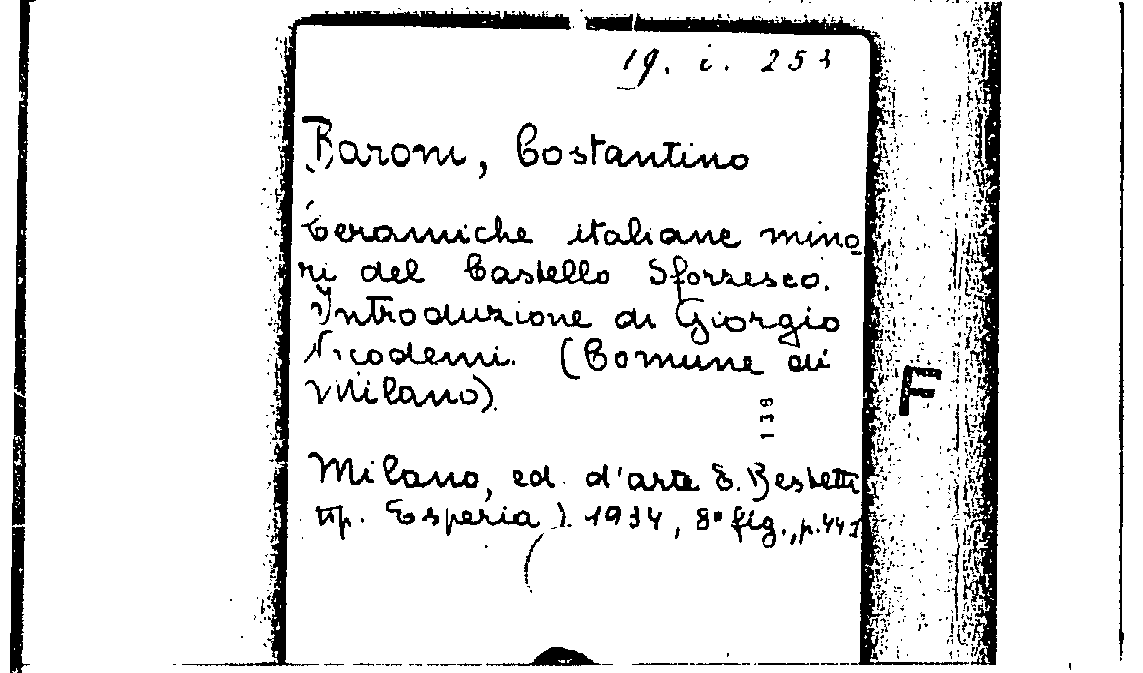 19. i. 253
Baroni, Costantino
Ceramiche italiane mino
ri del Castello Sforzesco.
Introduzione di Giorgio
Nicodemi. (Comune di
Milano).
138
F
Milano, ed. d'arte E. Bestetti
tip. Esperia). 1934, 8° fig., p.